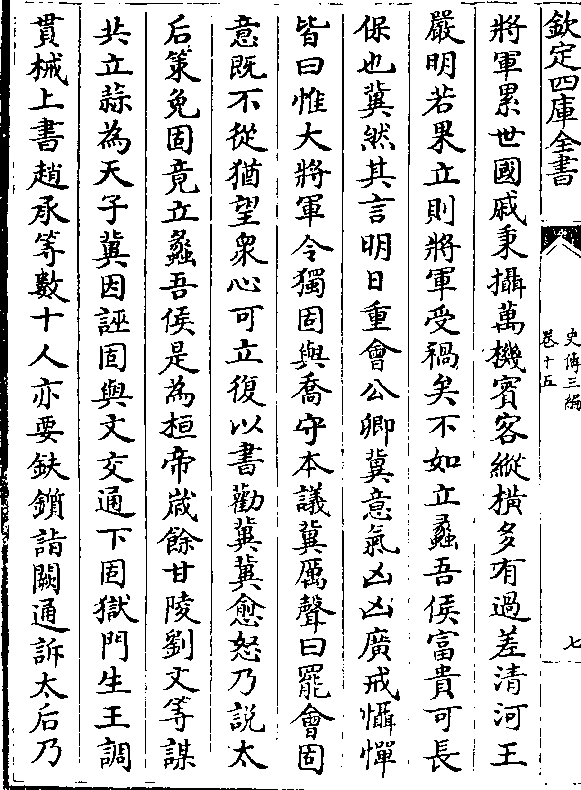 欽定四庫全書
史傳三編
卷十五
七
將軍累世國戚秉攝萬機賓客縱橫多有過差清河王
嚴明若果立則將軍受禍矣不如立蠡吾侯富貴可長
保也冀然其言明日重會公卿冀意氣凶凶廣戒懾憚
皆曰惟大將軍令獨固與喬守本議冀厲聲曰罷會固
意既不從猶望衆心可立復以書勸冀冀愈怒乃說太
后策免固竟立蠡吾侯是為桓帝歲餘甘陵劉文等謀
共立蒜為天子冀因誣固與文交通下固獄門生王調
貫械上書趙承等數十人亦要鈇鑕詣闕通訴太后乃